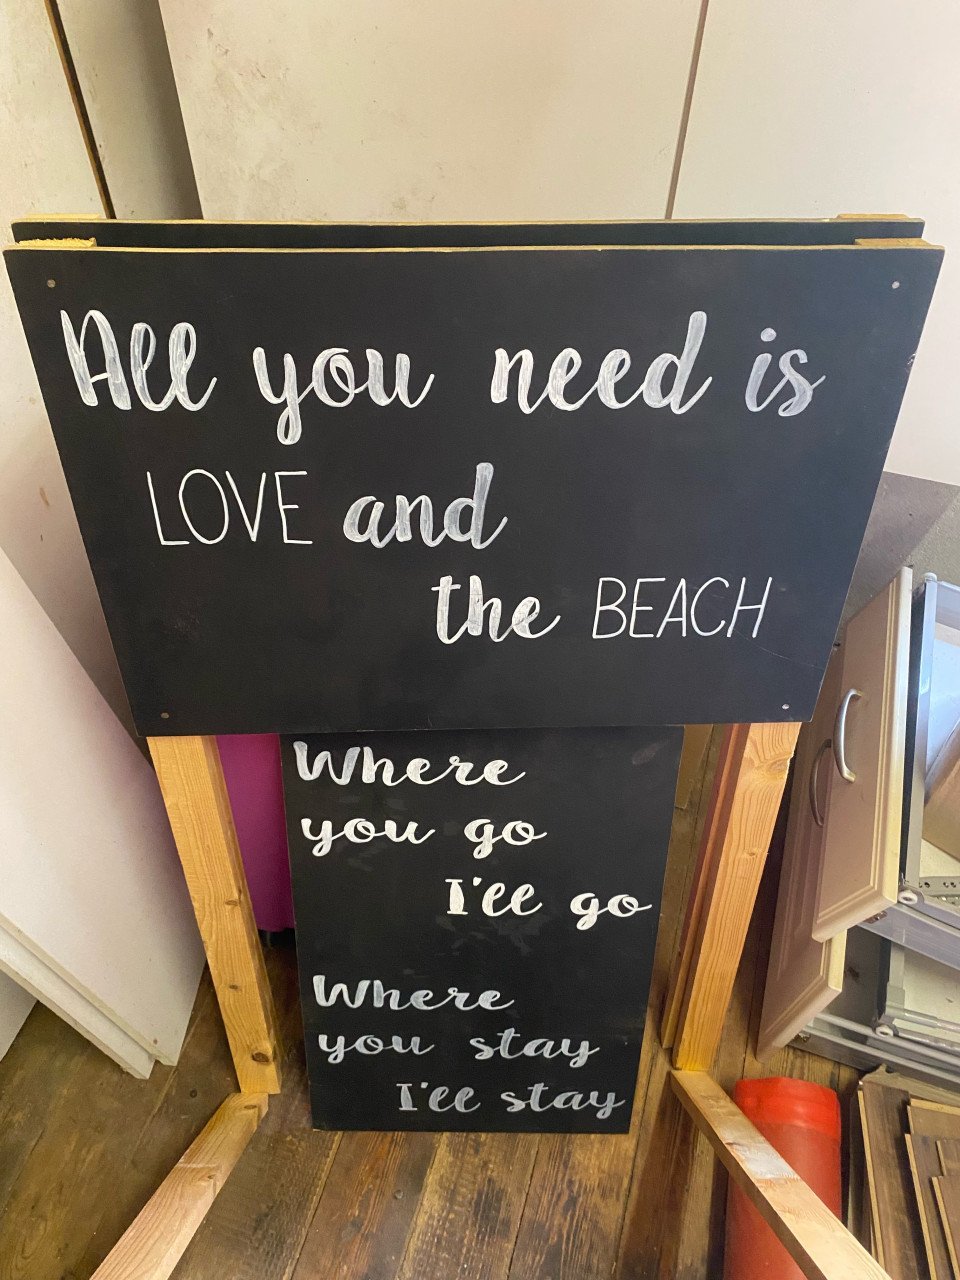 All you need is
LOVE and
the BEACH
Where
you go
I'll go
Where
you stay
I'll stay